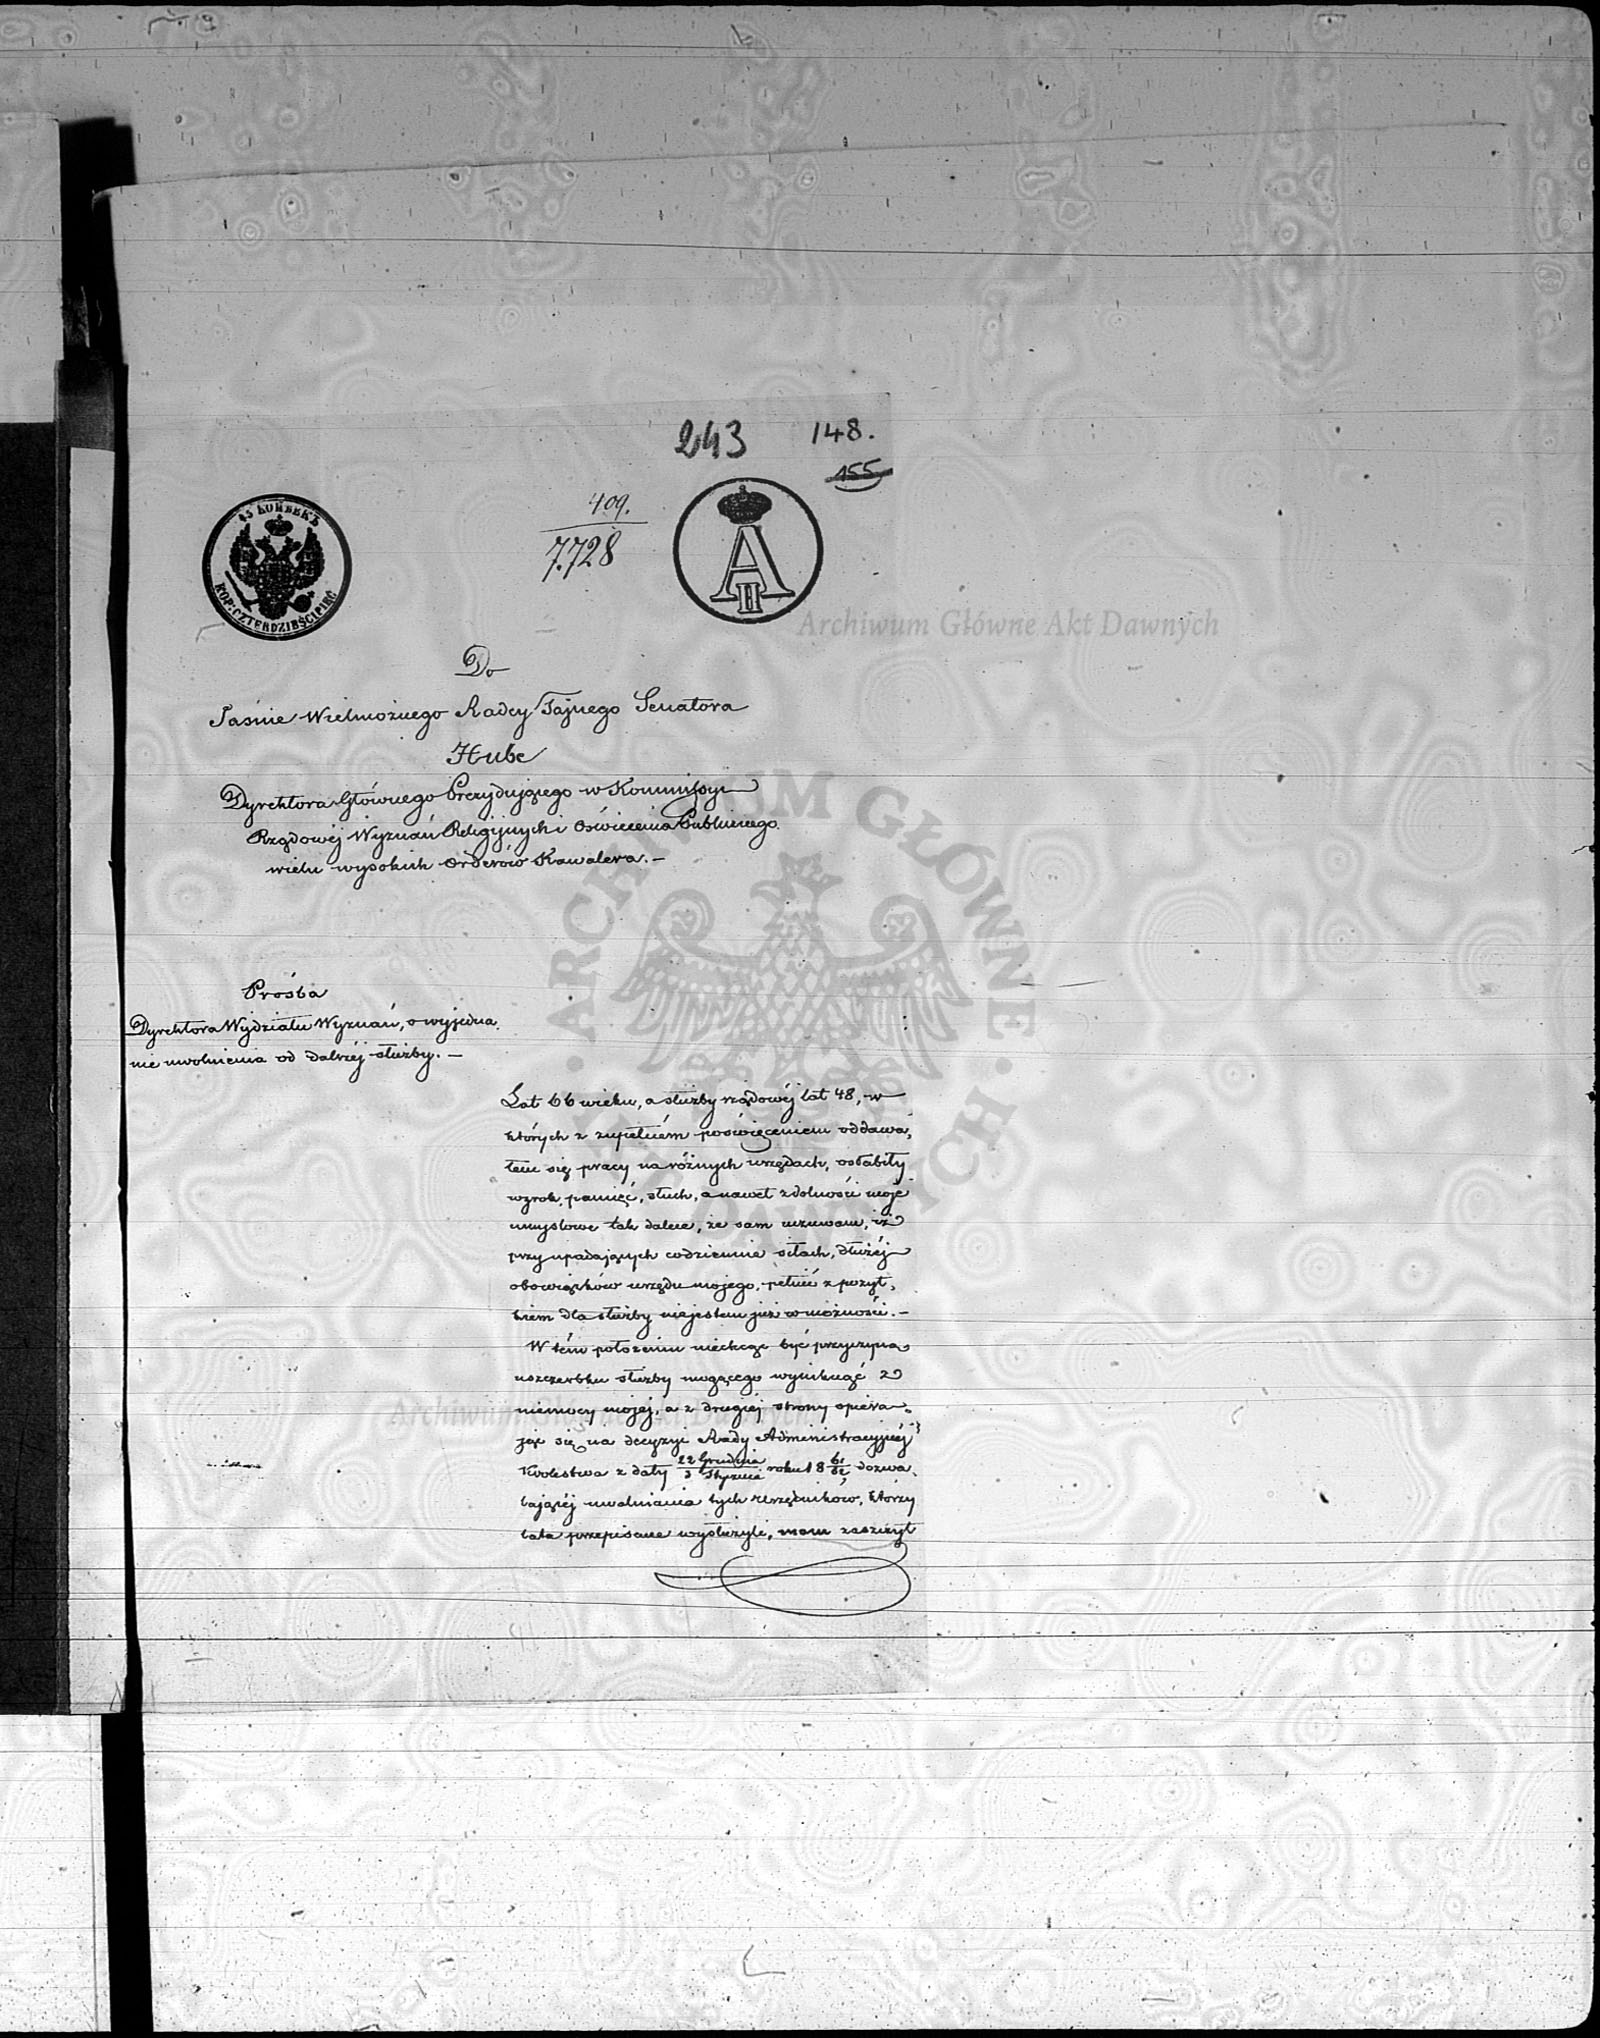 243
148.
155
409.
7.728
45 КОПѢЕКЪ
KOP: CZTERDZIEŚCI PIĘĆ
A II
Archiwum Główne Akt Dawnych
Do
Jaśnie Wielmożnego Radcy Tajnego Senatora
Hube
Dyrektora Głównego Prezydującego w Kommissyi
Rządowéj Wyznań Religijnych i Oświecenia Publicznego
wielu wysokich Orderów Kawalera. –
ARCHIWUM GŁÓWNE AKT DAWNYCH
Prośba
Dyrektora Wydziału Wyznań, o wyjedna,
nie uwolnienia od dalszéj służby. –
Lat 66 wieku, a służby rządowéj lat 48, w
których z zupełném poświęceniem oddawa,
łem się pracy na różnych urzędach, osłabiły
wzrok, pamięć, słuch, a nawet zdolności moje
umysłowe tak dalece, że sam uznawam, iż
przy upadających codziennie siłach, dłużéj
obowiązków urzędu mojego, pełnić z pożyt,
kiem dla służby niejestem już w możności. –
W tém położeniu niechcąc być przyczyną
uszczerbku służby mogącego wyniknąć z
niemocy mojéj, a z drugiéj strony opiera,
jąc się na decyzyi Rady Administracyjnéj
Królestwa z daty 22 Grudnia / 3 Stycznia roku 18 61/62 dozwa,
lającéj uwalniania tych Urzędników, którzy
lata przepisane wysłużyli, mam zaszczyt
Archiwum Główne Akt Dawnych